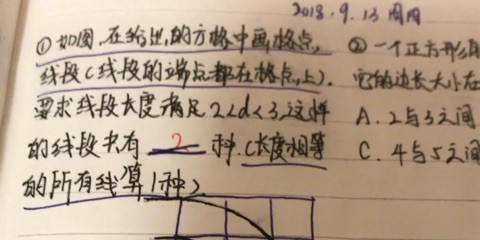 2018.9.13 周四
① 如图,在给出的方格中画格点
线段(线段的端点都在格点上).
要求线段长度满足2<d<3,这样
的线段共有 2 种.(长度相等
的所有线算1种)
② 一个正方形
它的边长大小在
A. 2与3之间
C. 4与5之间